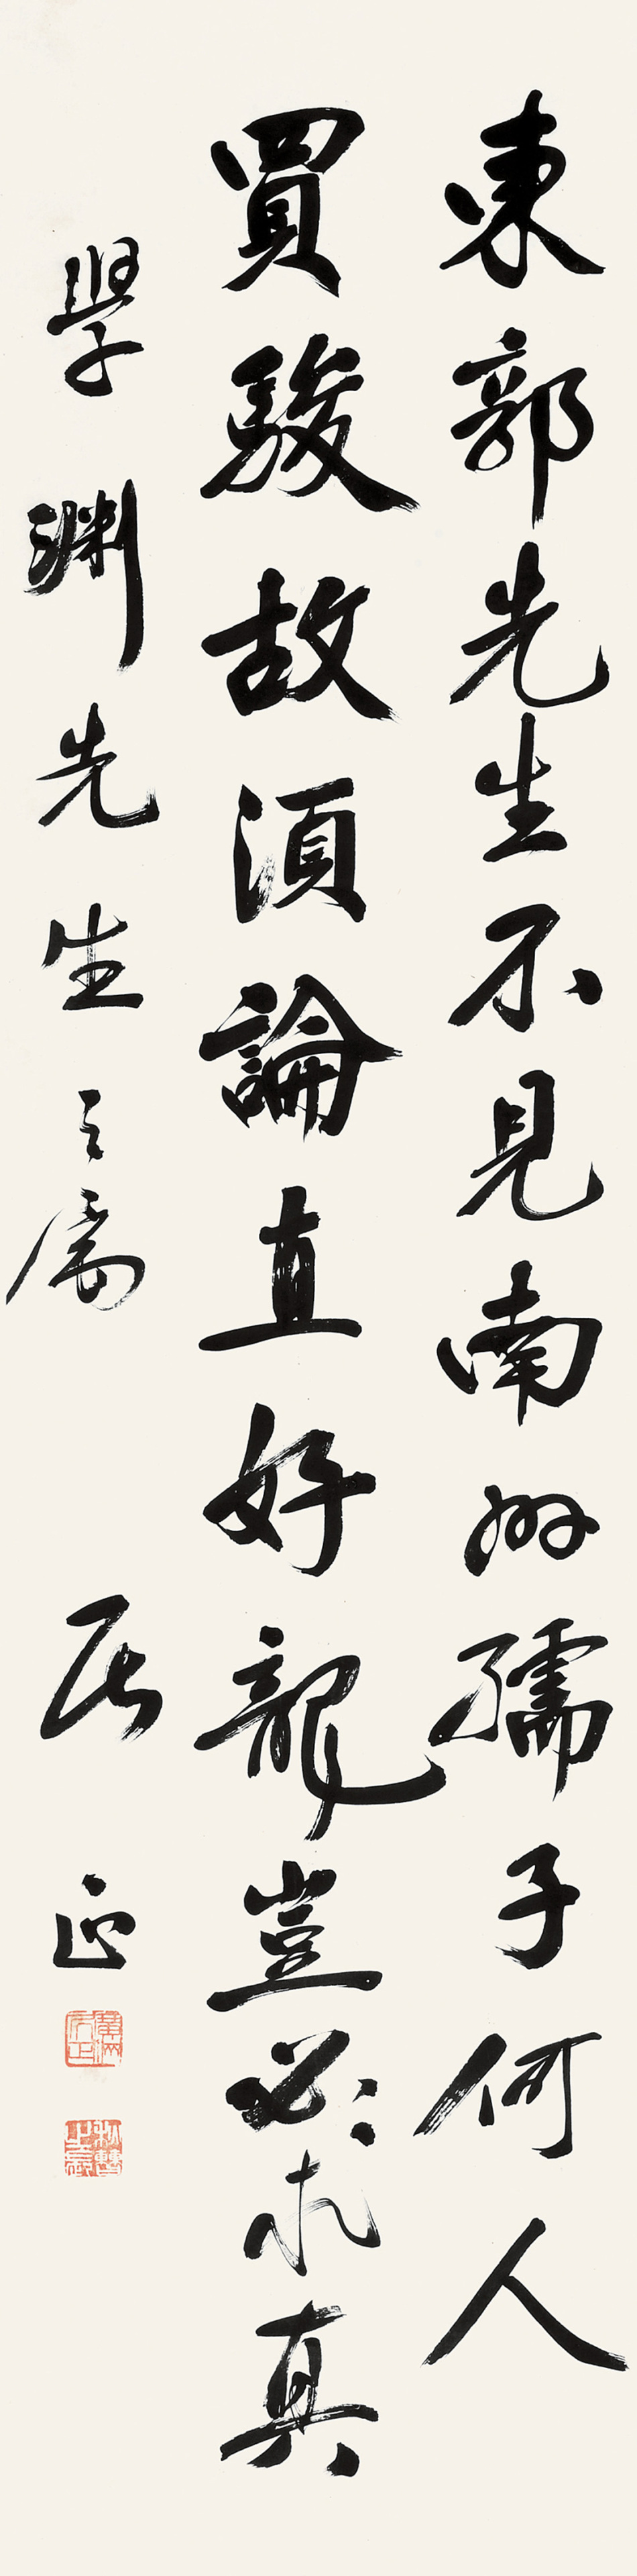 東郭先生不見南州孺子何人
買駿故須論直好龍豈必求真
學淵先生之屬
居正